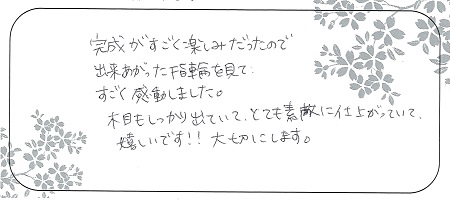 完成がすごく楽しみだったので
出来あがった指輪を見て
すごく感動しました。
木目もしっかり出ていて、とても素敵に仕上がっていて、
嬉しいです!! 大切にします。